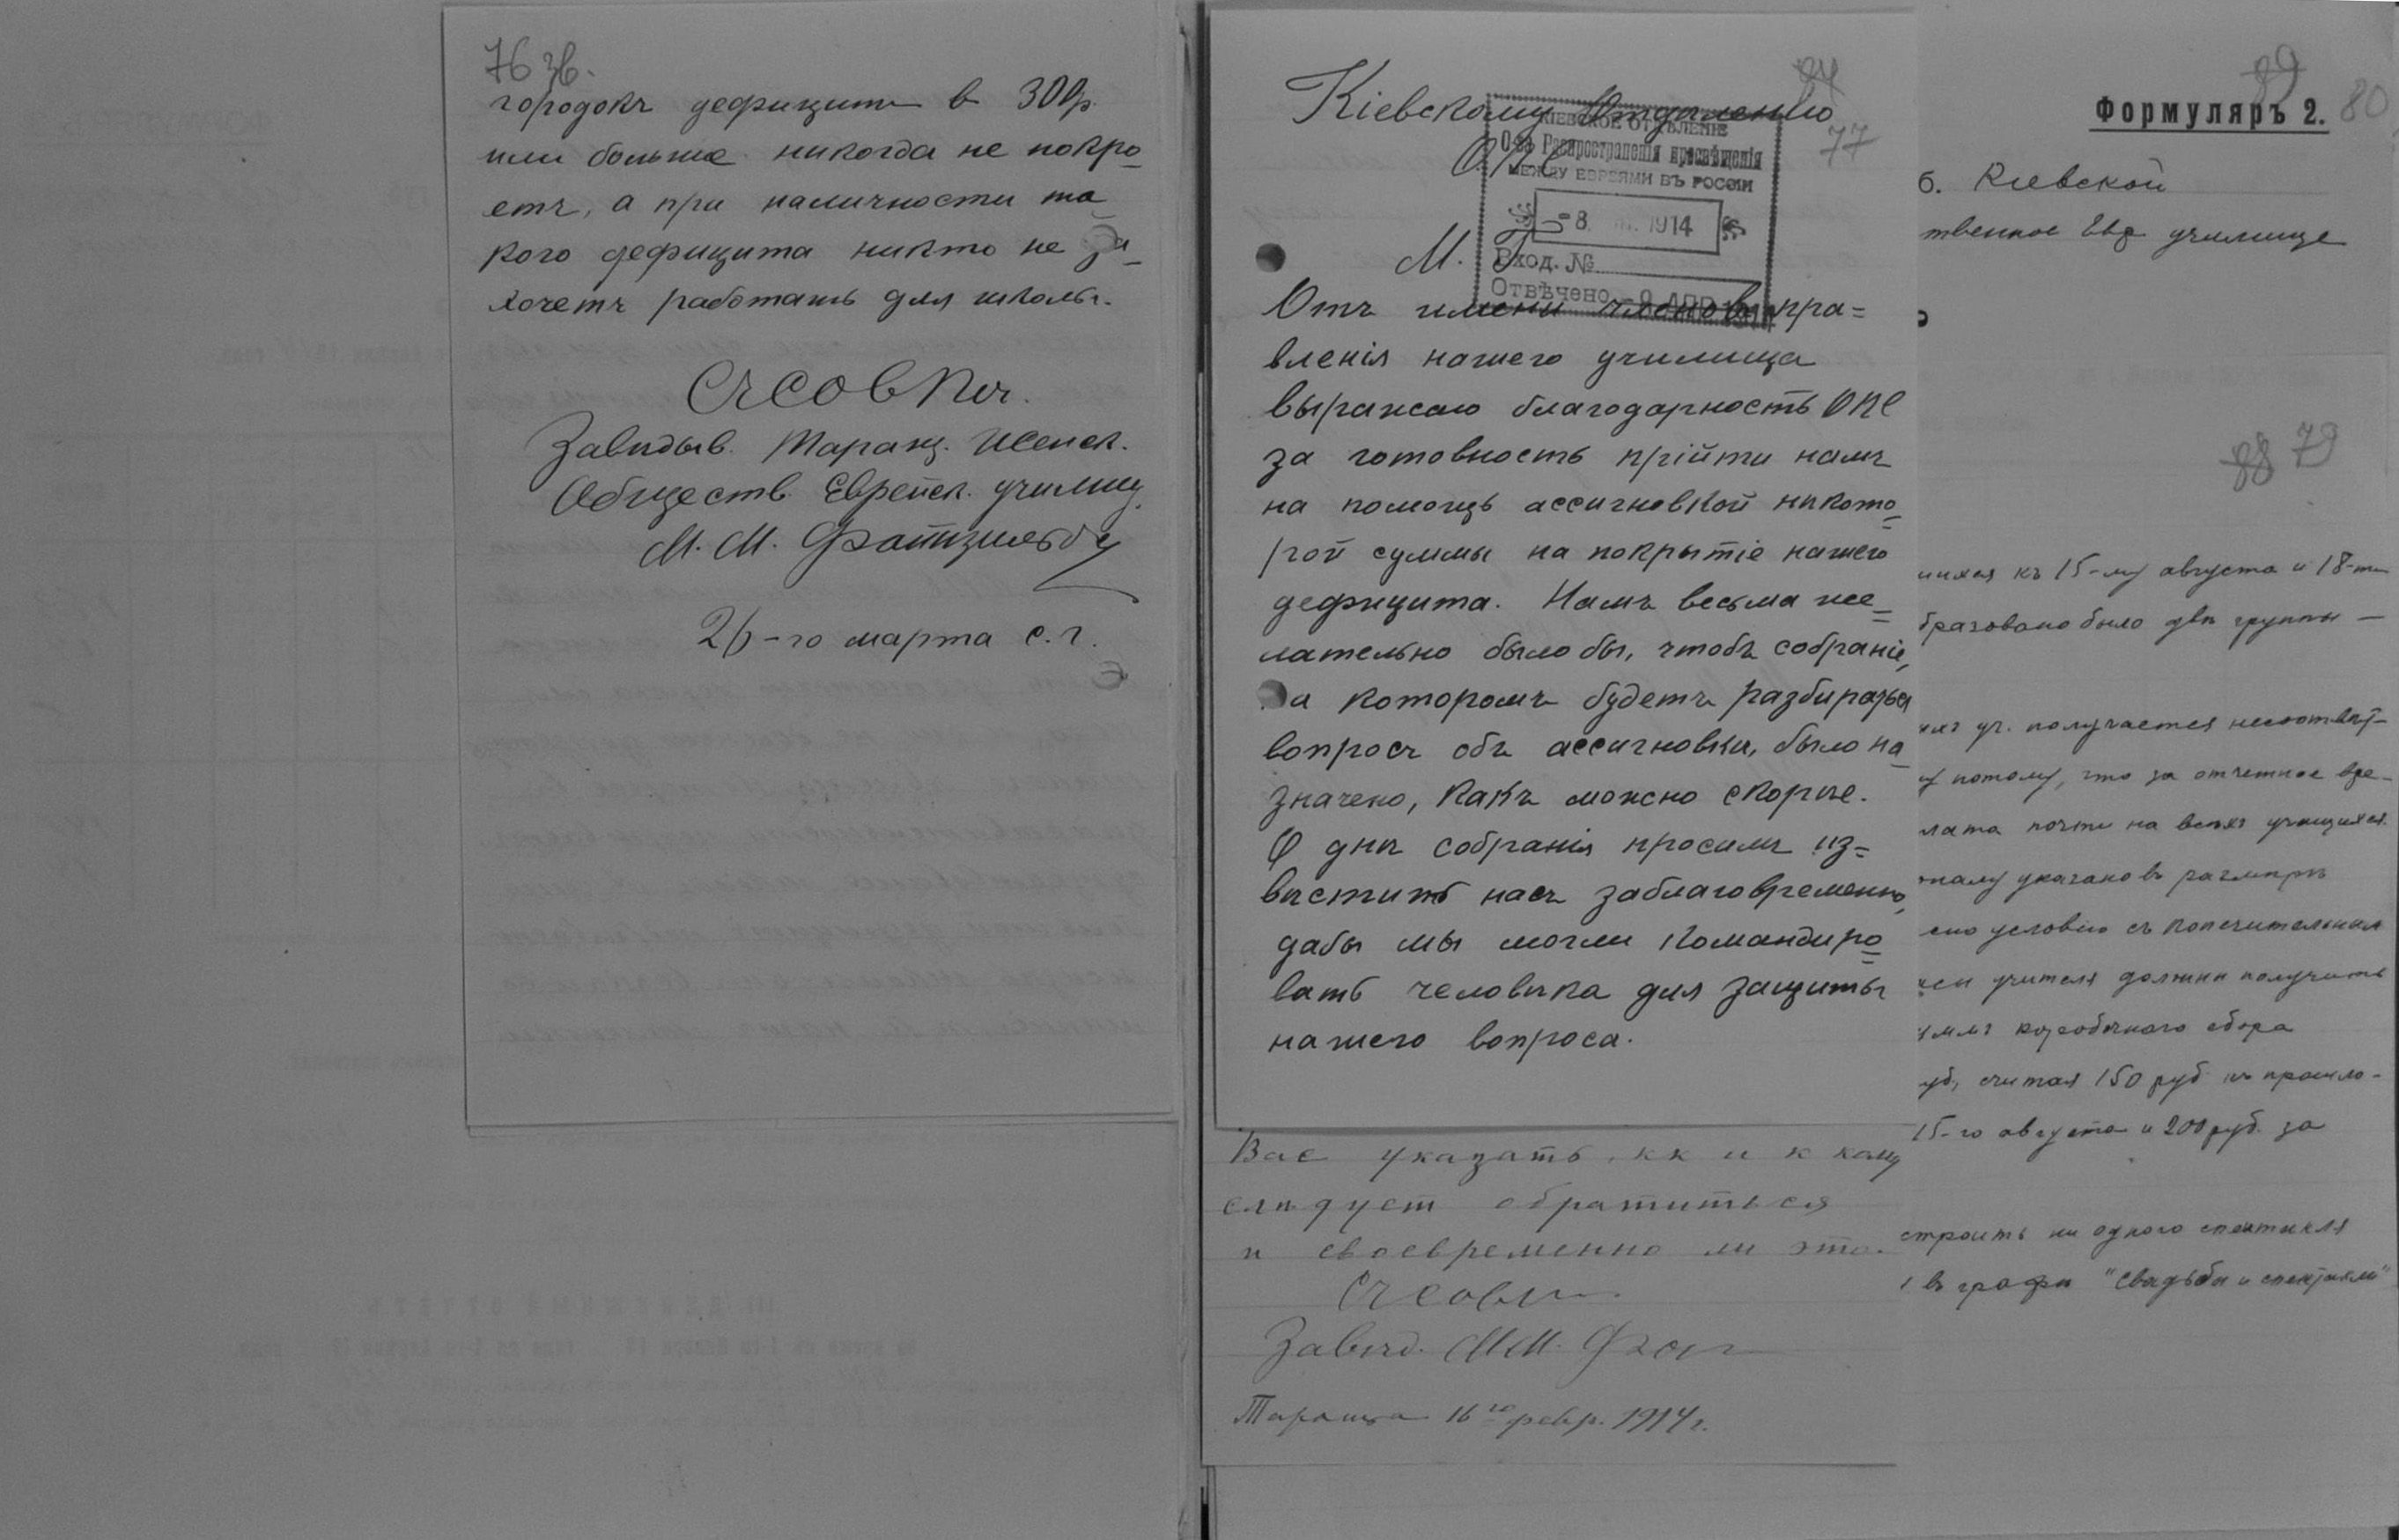 76 зв.
городокъ дефицитъ в 300р.
или больше никогда не покро-
етъ, а при наличности та-
кого дефицита никто не за-
хочетъ работать для школы.
Съ сов. поч.
Завѣдыв. Таращ. женск.
Обществ. Еврейск. училищ.
М. М.
26-го марта с. г.
84
77
Кіевскому Отдѣленію
О.П.Е.
КІЕВСКОЕ ОТДѢЛЕНІЕ
О-ва Распространенія просвѣщенія
МЕЖДУ ЕВРЕЯМИ ВЪ РОССІИ
-8 1914
Вход. №
Отвѣчено -9 АПР 1914
М. Г.
Отъ имени членовъ пра=
вленія нашего училища
выражаю благодарность ОПЕ
за готовность прійти намъ
на помощь ассигновкой нѣкото=
рой суммы на покрытіе нашего
дефицита. Намъ весьма же=
лательно было бы, чтобъ собраніе,
на которомъ будетъ разбираться
вопросъ объ ассигновкѣ, было на=
значено, какъ можно скорѣе.
О днѣ собранія просимъ из=
вѣстить насъ заблаговременно,
дабы мы могли командиро=
вать человѣка для защиты
нашего вопроса.
Вас указать, кк и к кому
слѣдует обратиться
и своевременно ли это.
Съ сов. п
Завѣд. М.М.
Тараща 16го февр. 1914 г.
89
80
Формуляръ 2.
б. Кіевской
твенное Евр училище
88 79
шихся къ 15-му августа и 18-ти
бразовано было двѣ группы —
уч. получается несоотвѣт-
у потому, что за отчетное вре-
лата почти на всѣхъ учащихся.
указано въ размѣрѣ
сно условію съ попечительным
учителя должны получить
коробочнаго сбора
уб, считая 150 руб. въ прошло-
15-го августа и 200 руб. за
строить ни одного спектакля
въ графѣ "Свадьбы и спектакли"